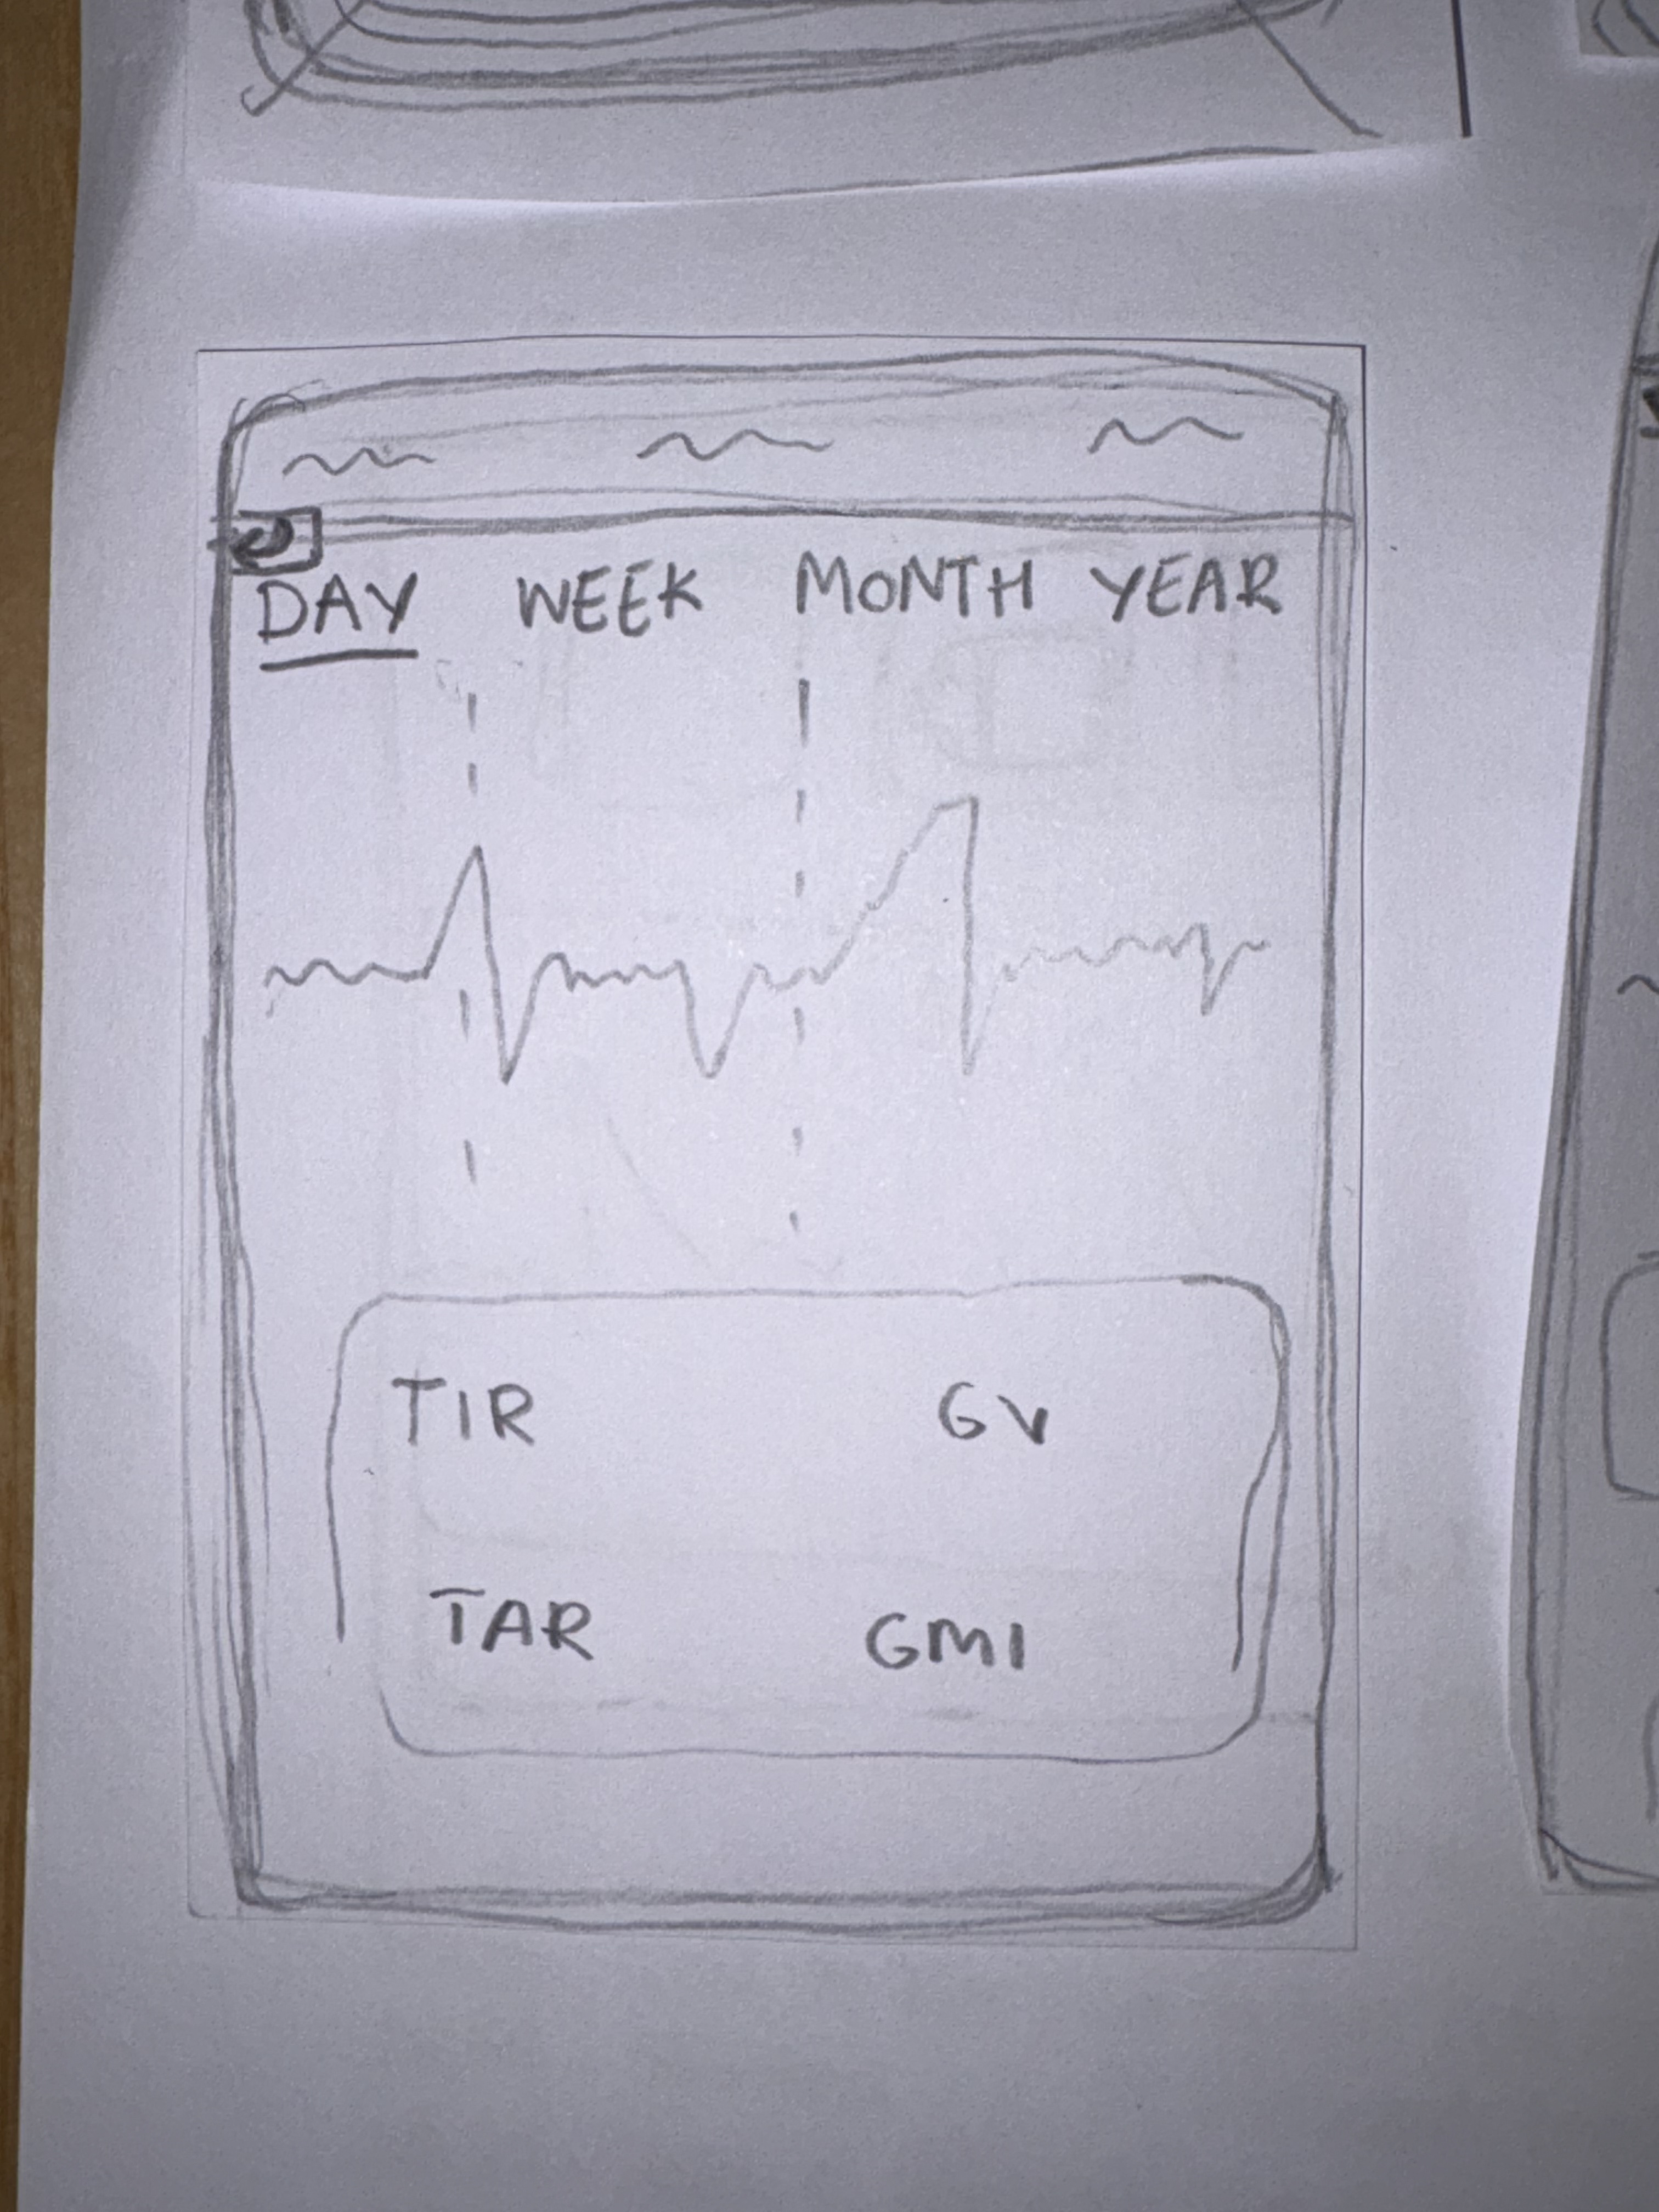 DAY WEEK MONTH YEAR
TIR GV
TAR GMI